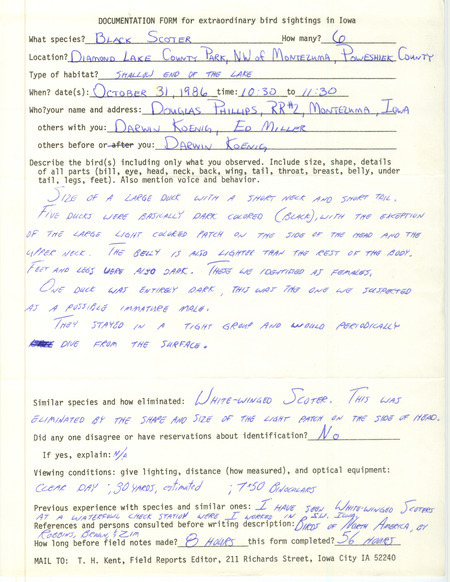 DOCUMENTATION FORM for extraordinary bird sightings in Iowa
What species? BLACK SCOTER How many? 6
Location? DIAMOND LAKE COUNTY PARK, NW OF MONTEZUMA, POWESHIEK COUNTY
Type of habitat? SHALLOW END OF THE LAKE
When? date(s): OCTOBER 31, 1986 time: 10:30 to 11:30
Who?your name and address: DOUGLAS PHILLIPS, RR#2, MONTEZUMA, IOWA
others with you: DARWIN KOENIG, ED MILLER
others before or after you: DARWIN KOENIG
Describe the bird(s) including only what you observed. Include size, shape, details
of all parts (bill, eye, head, neck, back, wing, tail, throat, breast, belly, under
tail, legs, feet). Also mention voice and behavior.
SIZE OF A LARGE DUCK WITH A SHORT NECK AND SHORT TAIL.
FIVE DUCKS WERE BASICALLY DARK COLORED (BLACK), WITH THE EXCEPTION
OF THE LARGE LIGHT COLORED PATCH ON THE SIDE OF THE HEAD AND THE
UPPER NECK. THE BELLY IS ALSO LIGHTER THAN THE REST OF THE BODY.
FEET AND LEGS WERE ALSO DARK. THESE WE IDENTIFIED AS FEMALES.
ONE DUCK WAS ENTIRELY DARK, THIS WAS THE ONE WE SUSPECTED
AS A POSSIBLE IMMATURE MALE.
THEY STAYED IN A TIGHT GROUP AND WOULD PERIODICALLY
DIVE FROM THE SURFACE.
Similar species and how eliminated: WHITE-WINGED SCOTER. THIS WAS
ELIMINATED BY THE SHAPE AND SIZE OF THE LIGHT PATCH ON THE SIDE OF HEAD.
Did any one disagree or have reservations about identification? NO
If yes, explain: N/A
Viewing conditions: give lighting, distance (how measured), and optical equipment:
CLEAR DAY ; 30 YARDS, estimated ; 7×50 BINOCULARS
Previous experience with species and similar ones: I HAVE SEEN WHITE-WINGED SCOTERS
AT A WATERFOWL CHECK STATION WERE I WORKED IN S.W. IOWA
References and persons consulted before writing description: BIRDS OF NORTH AMERICA, BY
ROBBINS, BRUUN, & ZIM
How long before field notes made? 8 HOURS this form completed? 56 HOURS
MAIL TO: T. H. Kent, Field Reports Editor, 211 Richards Street, Iowa City IA 52240